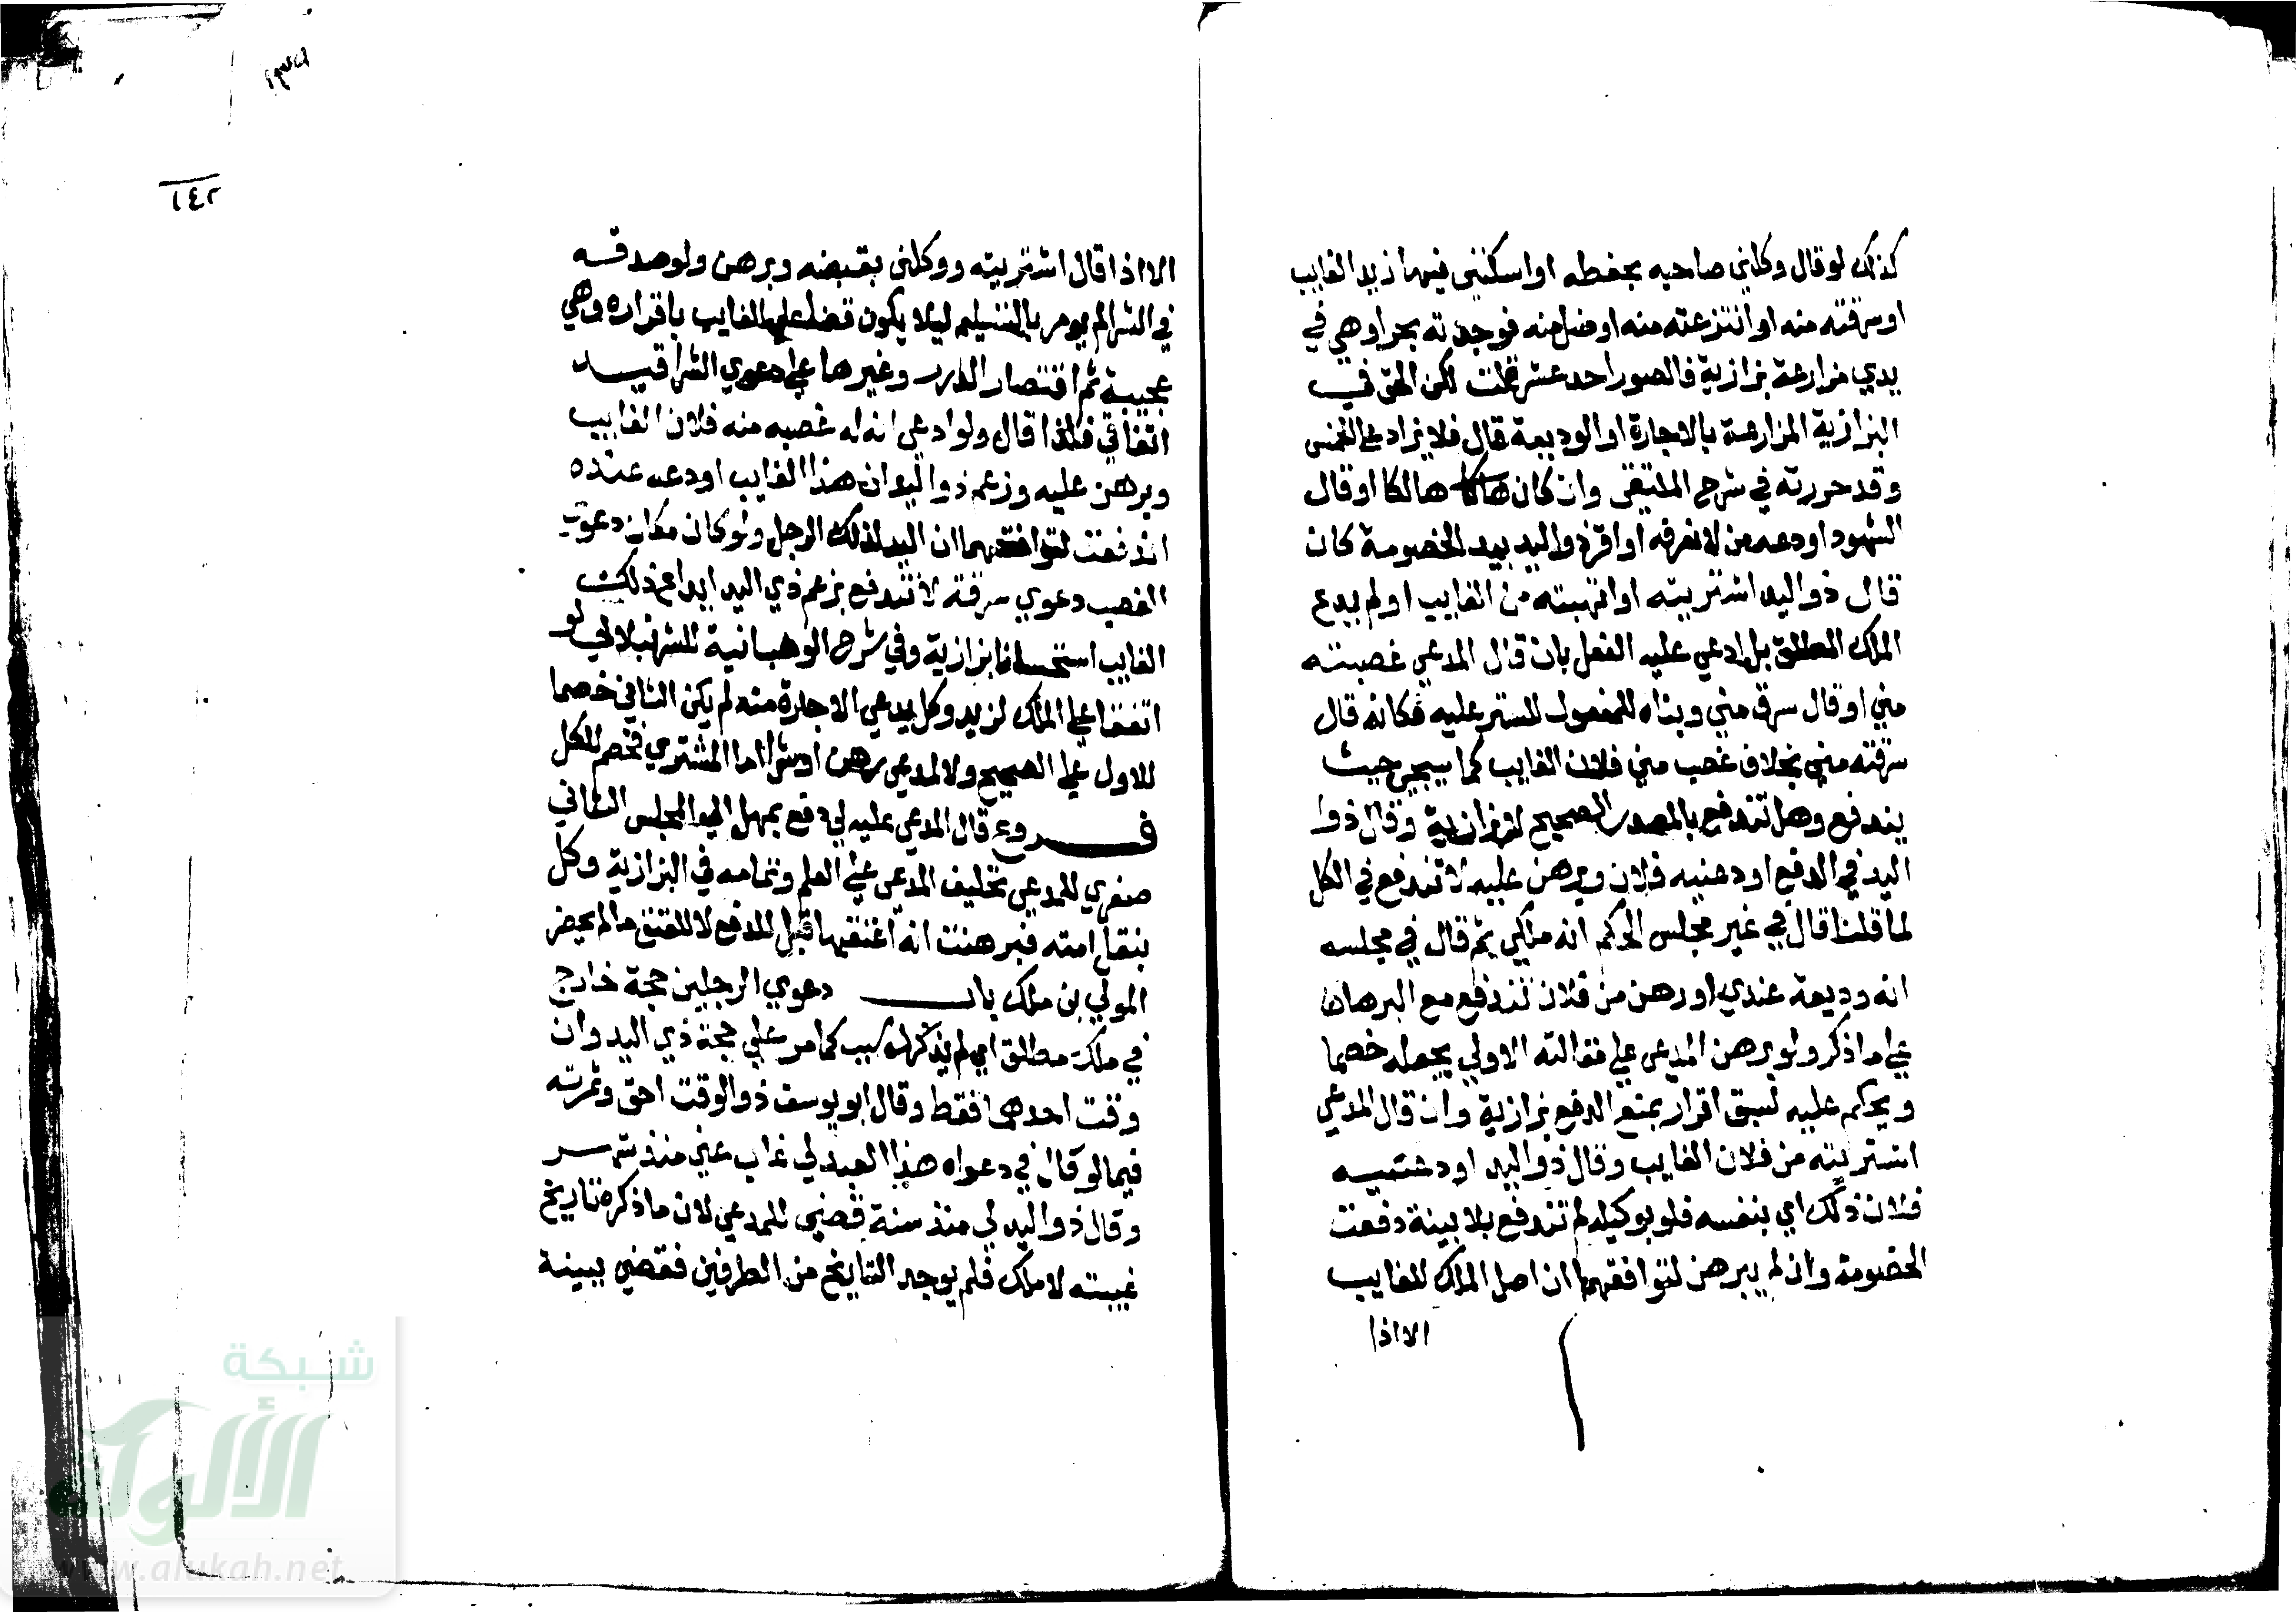 كذلك لو قال وكلني صاحبه بحفظه او اسكنني فيها زيد الغايب
او سرقته منه او انتزعته منه او ضل منه فوجدته بحر او هي في
يدي مزارعة بزازية فالصور احد عشر قلت لكن الحق في
البزازية المزارعة بالاجارة او الوديعة قال فلا يزاد على الخمس
وقد حررته في شرح الملتقى وان كان هالكا او قال
الشهود اودعه من لا نعرفه او اقر ذو اليد بيد الخصومة كان
قال ذو اليد اشتريته او اتهبته من الغايب او لم يدع
الملك المطلق بل ادعي عليه الفعل بان قال المدعي غصبته
مني او قال سرق مني وبناه للمفعول للستر عليه فكانه قال
سرقته مني بخلاف غصب مني فلان الغايب كما سيجي حيث
يندفع وهل تندفع بالمصدر الصحيح لا بزازية وقال ذوا
اليد في الدفع اودعنيه فلان وبرهن عليه لا تندفع في الكل
لما قلنا قال في غير مجلس الحكم انه ملكي ثم قال في مجلسه
انه وديعة عندي او رهن من فلان تندفع مع البرهان
علي ما ذكر ولو برهن المدعي علي مقالته الاولي يجعله خصما
ويحكم عليه لسبق اقرار يمنع الدفع بزازية وان قال المدعي
اشتريته من فلان الغايب وقال ذو اليد اودعنيه
فلان ذلك اي بنفسه فلو بوكيله لم تندفع بلا بينة دفعت
الخصومة وان لم يبرهن لتوافقهما ان اصل الملك للغايب
الا اذا
١٤٢
الا اذا قال اشتريته ووكلني بقبضه وبرهن ولو صدقه
في الشرا لم يومر بالتسليم ليلا يكون قضا علي الغايب باقراره وهي
عجيبة ثم اقتصار الدرر وغيرها علي دعوي الشرا قيد
اتفاقي فلذا قال ولو ادعي انه له غصبه منه فلان الغايب
وبرهن عليه وزعم ذو اليد ان هذا الغايب اودعه عنده
اندفعت لتوافقهما ان اليد لذلك الرجل ولو كان مكان دعوي
الغصب دعوي سرقة لا تندفع بزعم ذي اليد ايداع ذلك
الغايب استحسانا بزازية وفي شرح الوهبانية للشرنبلالي لو
اتفقا علي الملك لزيد وكل يدعي الاجارة منه لم يكن الثاني خصما
للاول علي الصحيح ولا لمدعي رهن او شرا اما المشتري فخصم للكل
فروع قال المدعي عليه لي دفع يمهل الي المجلس الثاني
صغري للمدعي تحليف المدعي علي العلم وتمامه في البزازية وكل
بنقل امته فبرهنت انه اعتقها قبل للدفع لا للعتق ما لم يحضر
المولي بن ملك باب دعوي الرجلين حجة خارج
في ملك مطلق اي لم يذكر له سبب كما مر علي حجة ذي اليد وان
وقت احدهما فقط وقال ابو يوسف ذو الوقت احق وثمرته
فيما لو قال في دعواه هذا العبد لي غاب عني منذ شهر
وقال ذو اليد لي منذ سنة قضي للمدعي لان ما ذكره تاريخ
غيبته لا ملك فلم يوجد التاريخ من الطرفين فقضي ببينة
شبكة
الألوكة
www.alukah.net